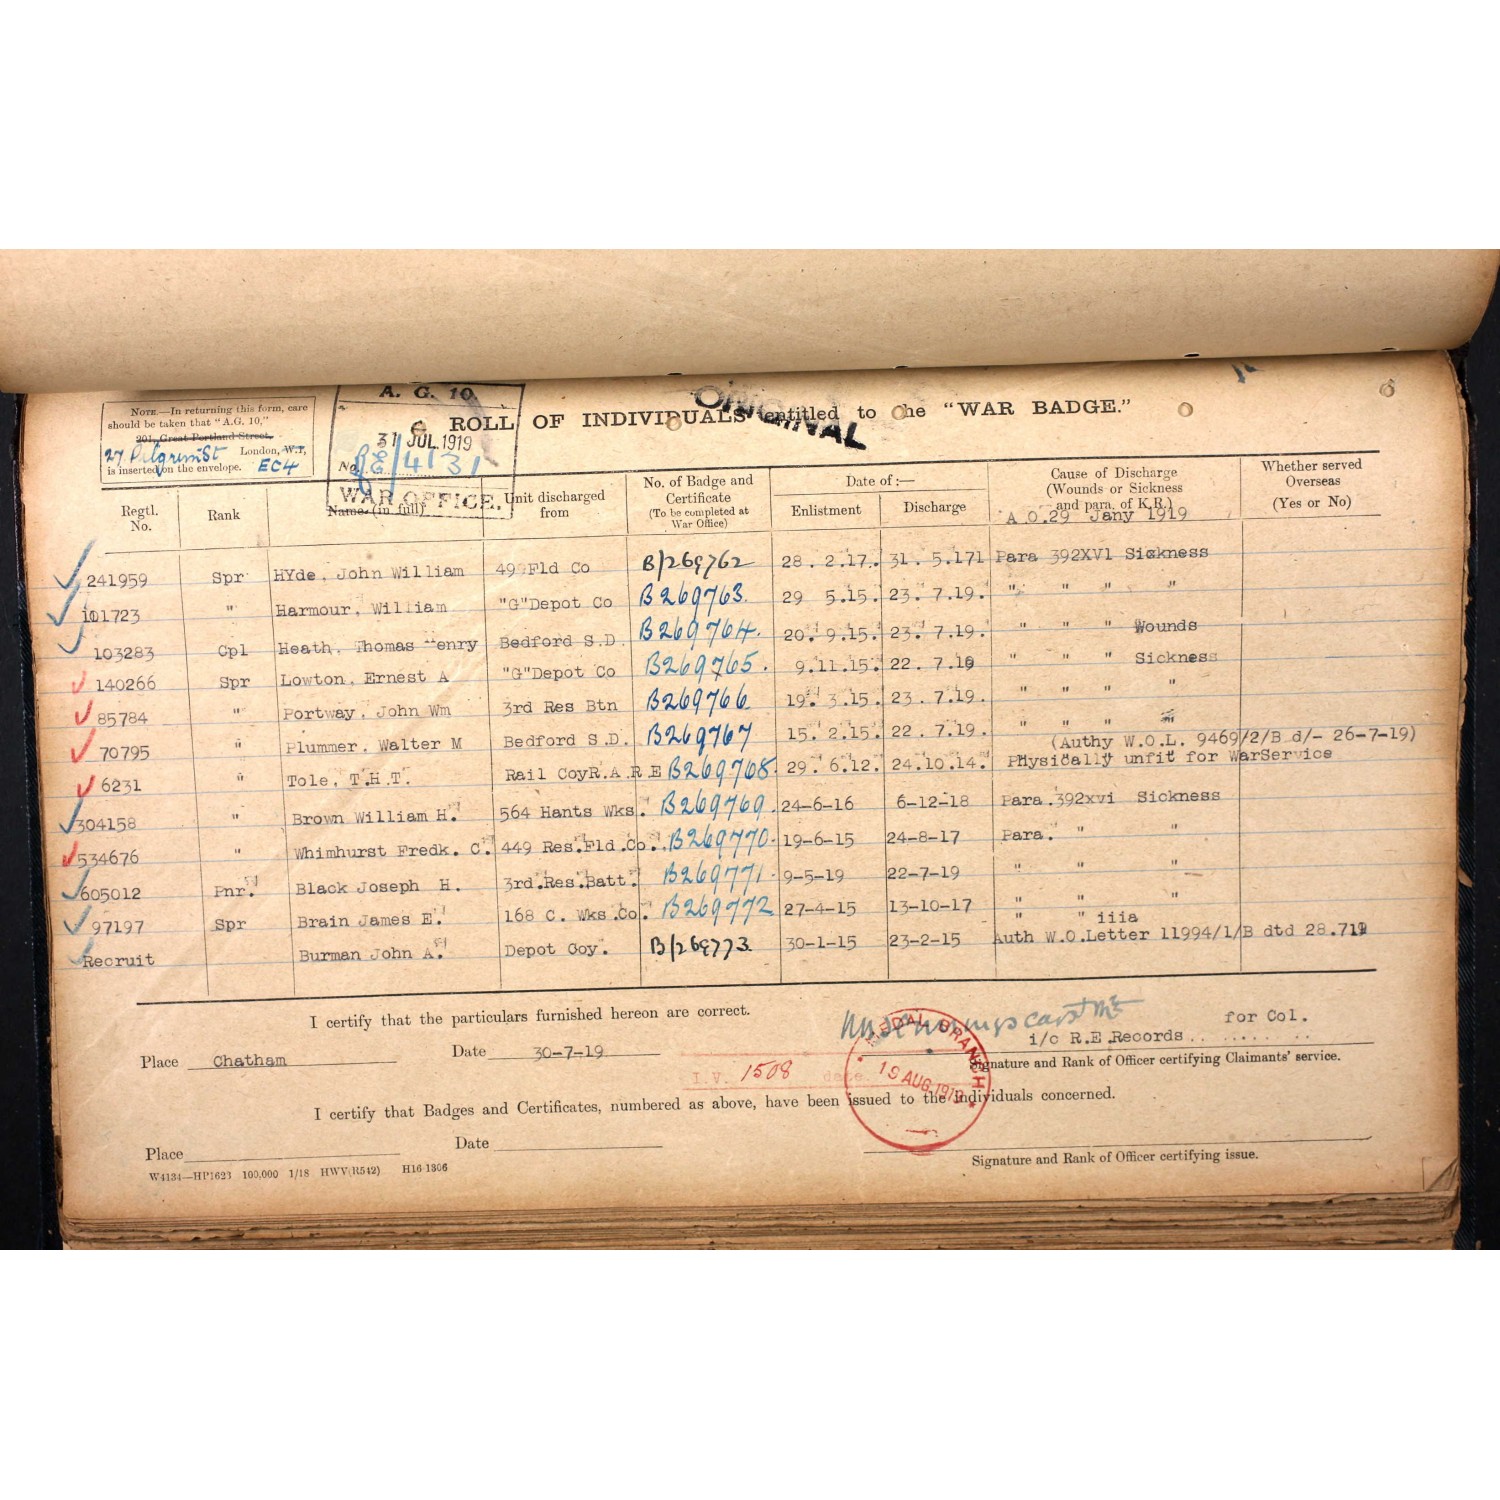 A. G. 10.
31 JUL.1919
No. RE/4131
WAR OFFICE.
NOTE.—In returning this form, care
should be taken that "A.G. 10,"
201, Great Portland Street,
27 Pilgrim St London, W.1,
is inserted on the envelope. EC4
ORIGINAL
ROLL OF INDIVIDUALS entitled to the "WAR BADGE."
Regtl. No. Rank Name (in full) Unit discharged from No. of Badge and Certificate (To be completed at War Office) Date of :— Enlistment Discharge Cause of Discharge (Wounds or Sickness and para. of K.R.) Whether served Overseas (Yes or No)
A.O.29 Jany 1919
241959 Spr HYde, John William 490 Fld Co B/269762 28. 2.17. 31. 5.171 Para 392XV1 Sickness
101723 " Harmour, William "G"Depot Co B269763. 29 5.15. 23. 7.19. " " " "
103283 Cpl Heath, Thomas Henry Bedford S.D. B269764. 20. 9.15. 23. 7.19. " " " Wounds
140266 Spr Lowton, Ernest A "G"Depot Co B269765. 9.11.15. 22. 7.19 " " " Sickness
85784 " Portway, John Wm 3rd Res Btn B269766 19. 3.15. 23. 7.19. " " " "
70795 " Plummer, Walter M Bedford S.D. B269767 15. 2.15. 22. 7.19. " " " "
(Authy W.O.L. 9469/2/B d/- 26-7-19)
6231 " Tole, T.H.T. Rail CoyR.A.R E B269768. 29. 6.12. 24.10.14. Physically unfit for WarService
304158 " Brown William H. 564 Hants Wks. B269769. 24-6-16 6-12-18 Para.392xvi Sickness
534676 " Whimhurst Fredk. C. 449 Res.Fld.Co. B269770. 19-6-15 24-8-17 Para. " "
605012 Pnr. Black Joseph H. 3rd.Res.Batt. B269771. 9-5-19 22-7-19 " " "
97197 Spr Brain James E. 168 C. Wks.Co. B269772 27-4-15 13-10-17 " " "
" " iiia
Recruit Burman John A. Depot Coy. B/269773. 30-1-15 23-2-15 Auth W.O.Letter 11994/1/B dtd 28.719
I certify that the particulars furnished hereon are correct.
for Col.
i/c R.E.Records
Place Chatham Date 30-7-19
Signature and Rank of Officer certifying Claimants' service.
I.V. 1508 date
MEDAL BRANCH
19 AUG.1919
I certify that Badges and Certificates, numbered as above, have been issued to the individuals concerned.
Place Date
Signature and Rank of Officer certifying issue.
W4134—HP1623 100,000 1/18 HWV(R542) H16/1306